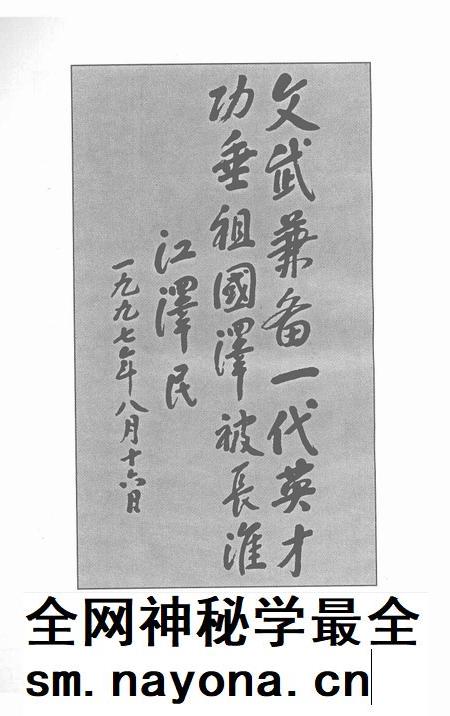 文武兼备一代英才
功垂祖國澤被長淮
江澤民
一九九七年八月十六日
全网神秘学最全
sm.nayona.cn